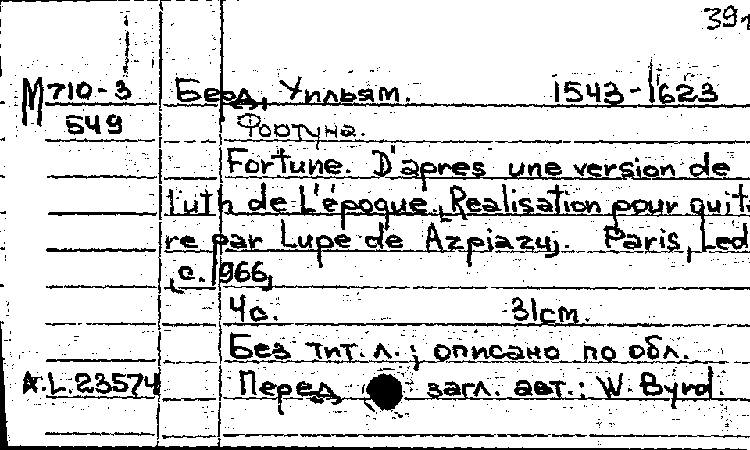 391
М710-3 Берд, Уильям. 1543-1623
549 Фортуна.
Fortune. D'apres une version de
luth de L'époque, Realisation pour quita
re par Lupe de Azpiazu. Paris, Led
c. 1966,
4с. 31см.
Без тит. л.; описано по обл.
A.L.23574 Перед загл. авт.: W. Byrd.